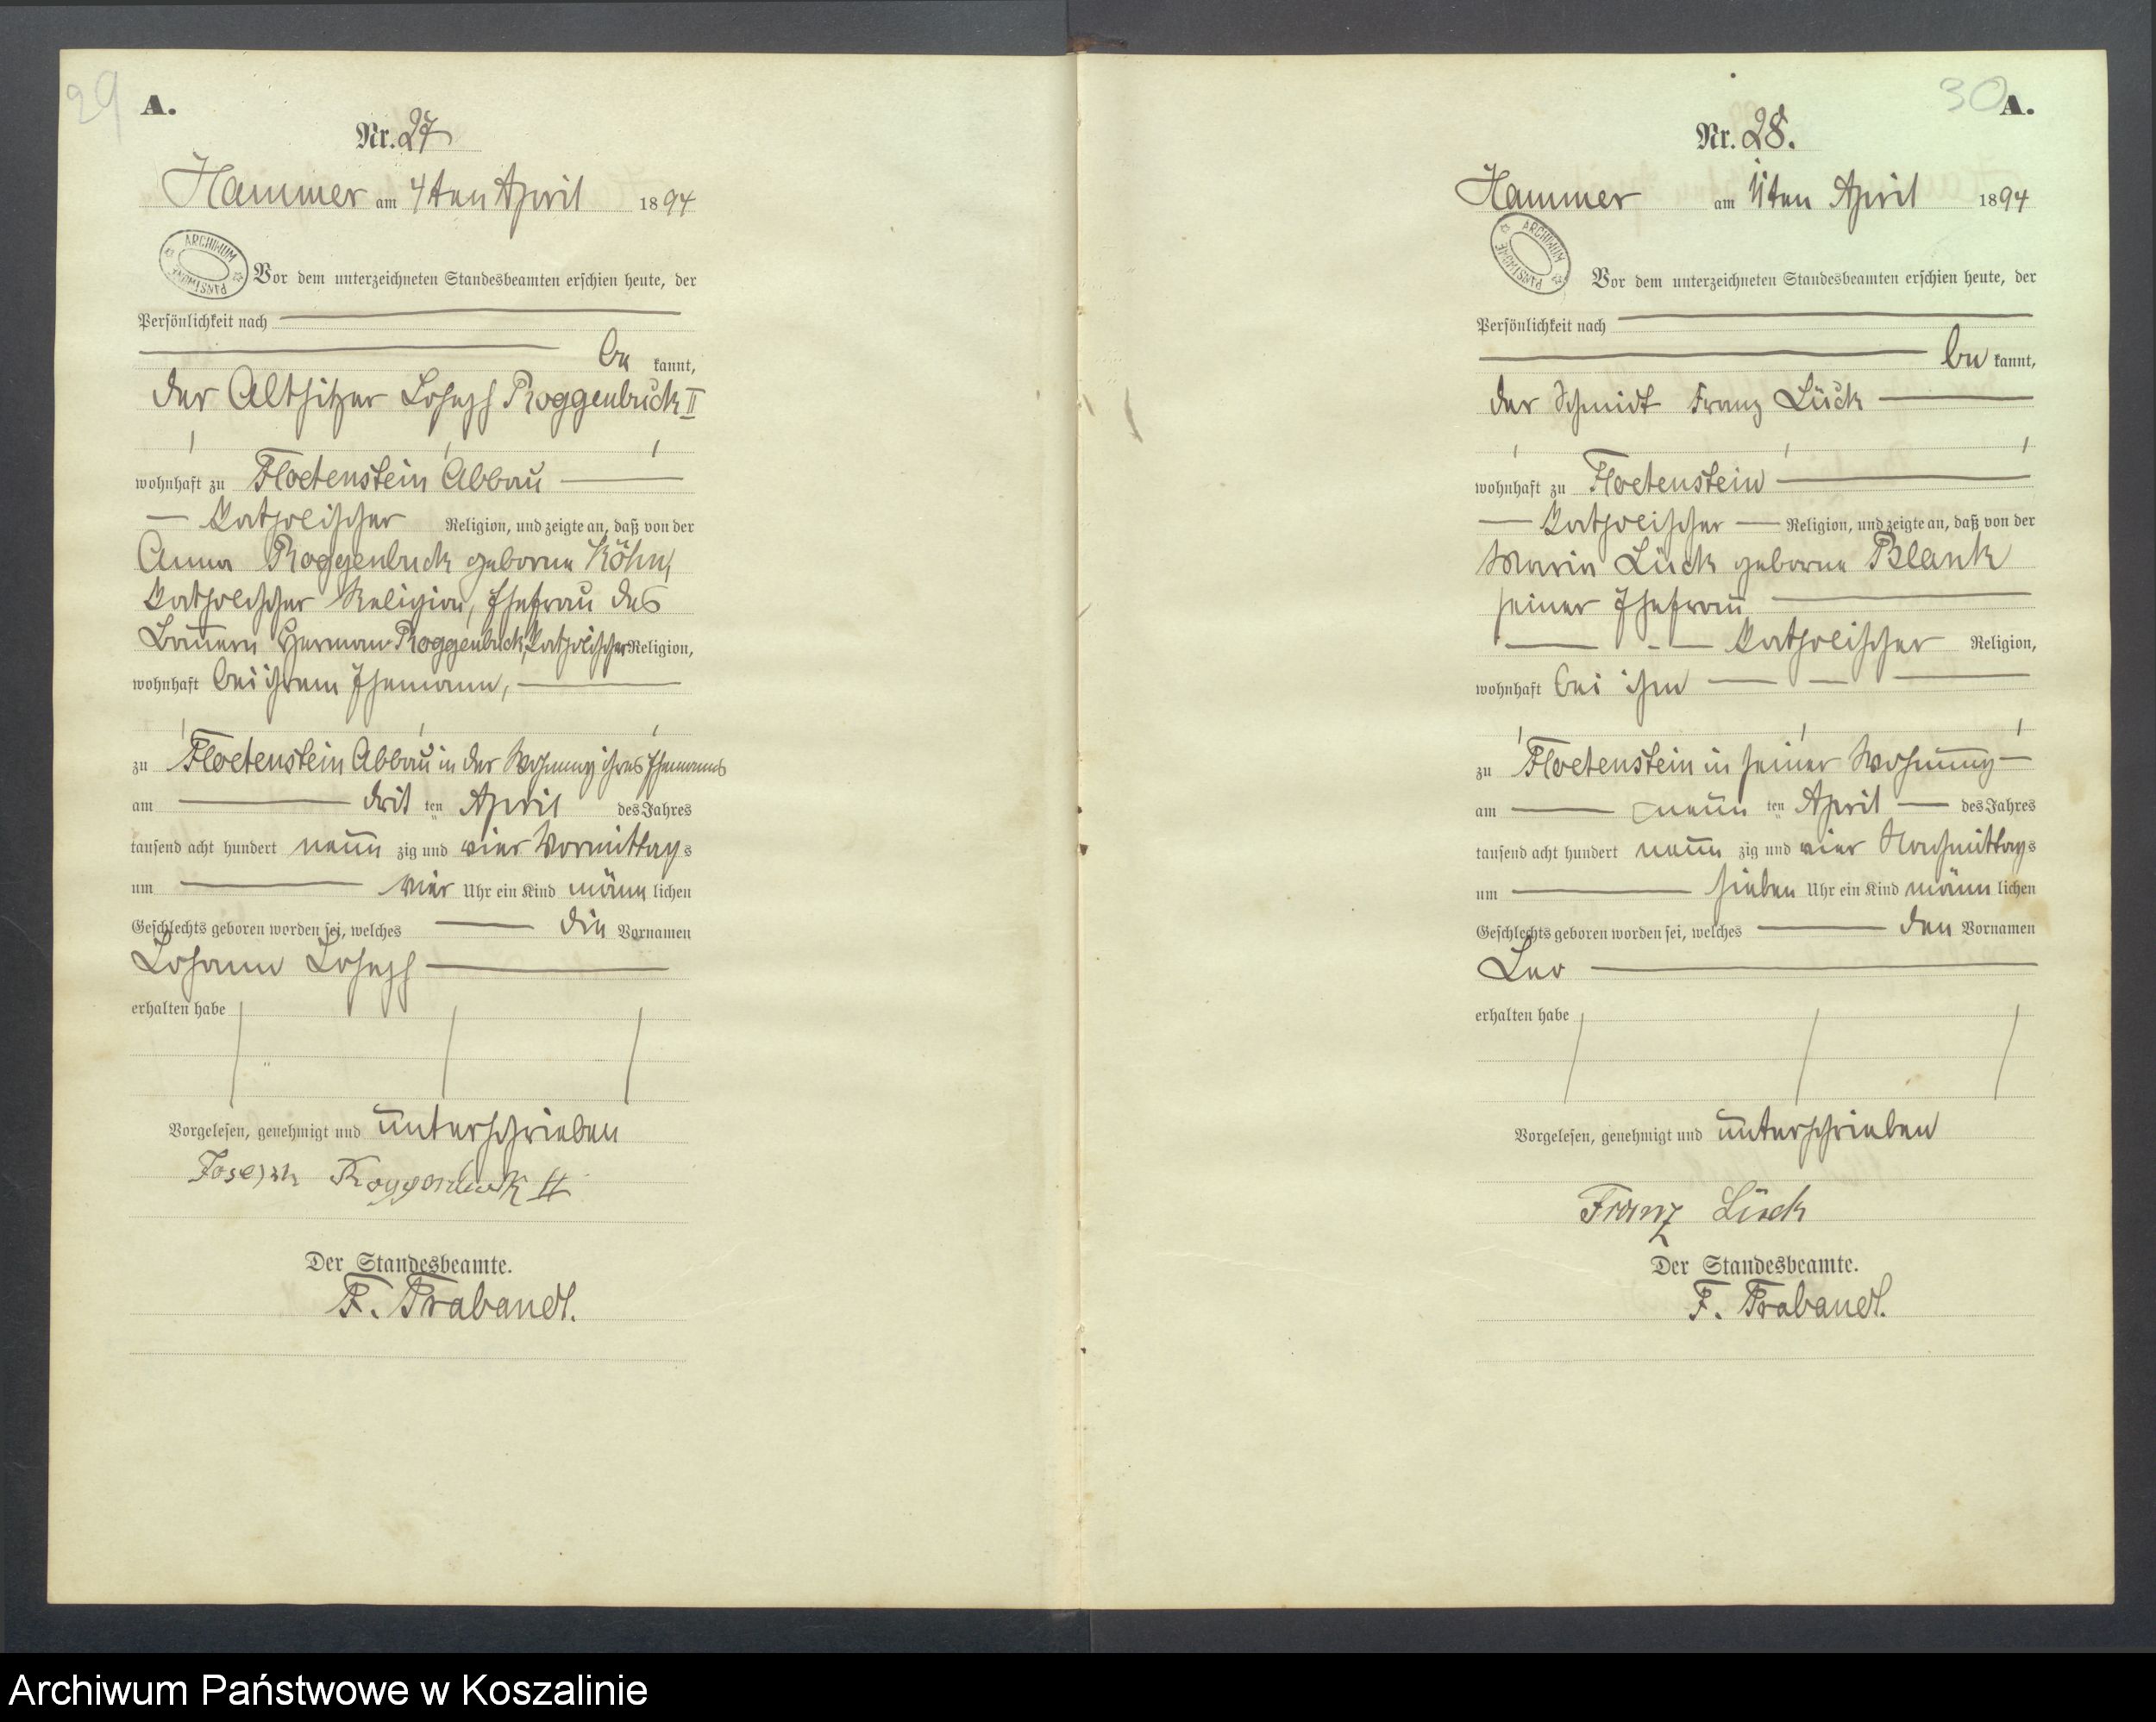 29
A.
Nr. 27
Hammer am 4ten April 1894
ARCHIWUM PAŃSTWOWE
Vor dem unterzeichneten Standesbeamten erschien heute, der
Persönlichkeit nach
be kannt,
der Altsitzer Joseph Roggenbuck II
wohnhaft zu Floetenstein Abbau
katholischer Religion, und zeigte an, daß von der
Anna Roggenbuck geborne Köhn,
katholischer Religion, Ehefrau des
Bauern Herman Roggenbuck, katholischer Religion,
wohnhaft bei ihrem Ehemann,
zu Floetenstein Abbau in der Wohnung ihres Ehemanns
am drit ten April des Jahres
tausend acht hundert neun zig und vier Vormittags
um vier Uhr ein Kind männ lichen
Geschlechts geboren worden sei, welches die Vornamen
Johann Joseph
erhalten habe
Vorgelesen, genehmigt und unterschrieben
Joseph Roggenbuck II
Der Standesbeamte.
F. Trabandt.
30
A.
Nr. 28.
Hammer am 11ten April 1894
ARCHIWUM PAŃSTWOWE
Vor dem unterzeichneten Standesbeamten erschien heute, der
Persönlichkeit nach
be kannt,
der Schmidt Franz Lück
wohnhaft zu Floetenstein
katholischer Religion, und zeigte an, daß von der
Maria Lück geborne Blank
seiner Ehefrau
katholischer Religion,
wohnhaft bei ihm
zu Floetenstein in seiner Wohnung
am neun ten April des Jahres
tausend acht hundert neun zig und vier Nachmittags
um sieben Uhr ein Kind männ lichen
Geschlechts geboren worden sei, welches den Vornamen
Leo
erhalten habe
Vorgelesen, genehmigt und unterschrieben
Franz Lück
Der Standesbeamte.
F. Trabandt.
Archiwum Państwowe w Koszalinie